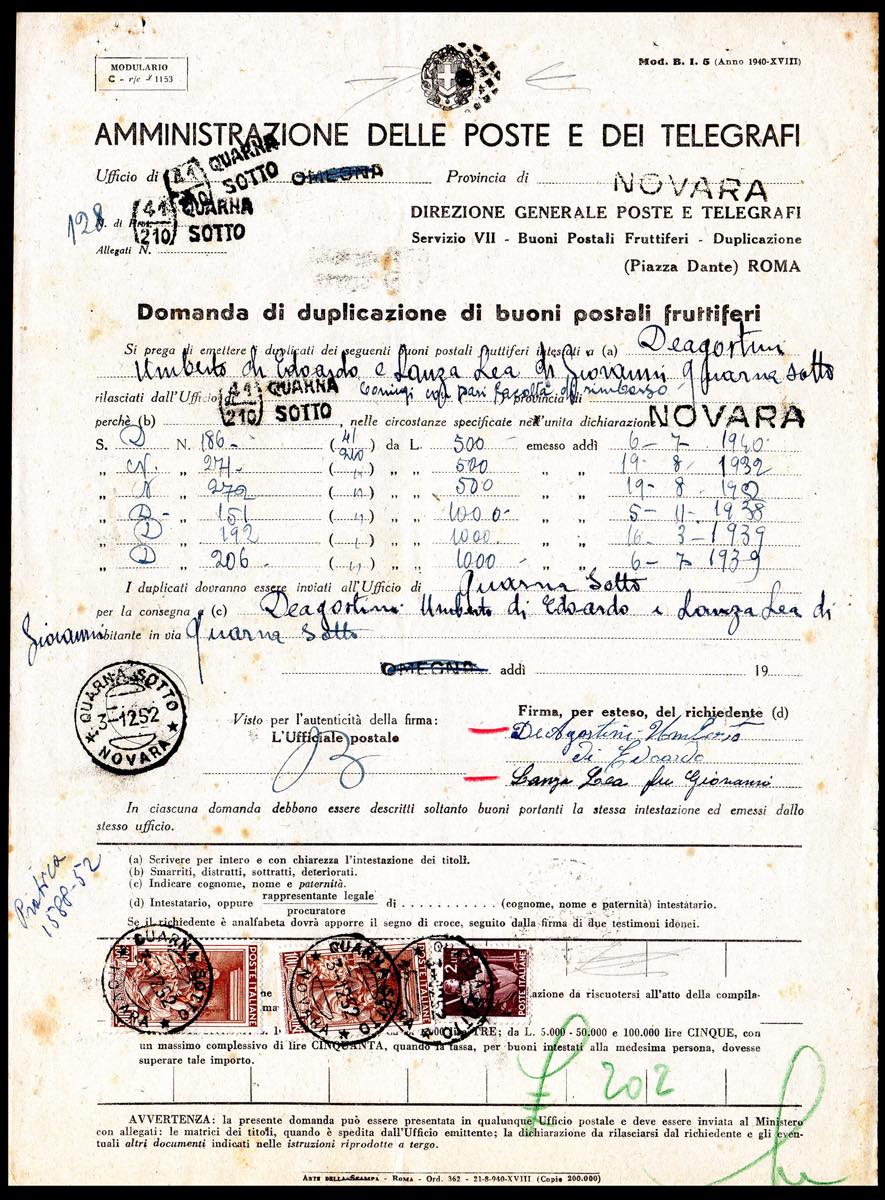 MODULARIO
C - r/c 1153
Mod. B. I. 5 (Anno 1940-XVIII)
AMMINISTRAZIONE DELLE POSTE E DEI TELEGRAFI
Ufficio di 41 210 QUARNA SOTTO OMEGNA Provincia di NOVARA
128 N. di 41 210 QUARNA SOTTO
DIREZIONE GENERALE POSTE E TELEGRAFI
Allegati N.
Servizio VII - Buoni Postali Fruttiferi - Duplicazione
(Piazza Dante) ROMA
Domanda di duplicazione di buoni postali fruttiferi
Si prega di emettere i duplicati dei seguenti buoni postali fruttiferi intestati a (a) Deagostini
Umberto di Edoardo e Lanza Lea di Giovanni Quarna Sotto
Coniugi con pari facoltà di rimborso
rilasciati dall'Ufficio di 41 210 QUARNA SOTTO provincia di
perchè (b) , nelle circostanze specificate nell'unita dichiarazione NOVARA
S. D N. 186 - (41/210) da L. 500 emesso addì 6 - 7 1940
„ N. „ 271 - ( „ ) „ „ 500 „ „ 19 - 8 - 1932
„ N „ 272 ( „ ) „ „ 500 „ „ 19 - 8 - 1932
„ D - „ 151 ( „ ) „ „ 1000 - „ „ 5 - 11 - 1938
„ D „ 192 ( „ ) „ „ 1000 „ „ 16 - 3 - 1939
„ D „ 206 ( „ ) „ „ 1000 „ „ 6 - 7 1939
I duplicati dovranno essere inviati all'Ufficio di Quarna Sotto
per la consegna a (c) Deagostini Umberto di Edoardo e Lanza Lea di
Giovanni abitante in via Quarna Sotto
OMEGNA addì 19
QUARNA SOTTO
3-12 52
NOVARA
Visto per l'autenticità della firma:
L'Ufficiale postale
Firma, per esteso, del richiedente (d)
DeAgostini Umberto
di Edoardo
Lanza Lea fu Giovanni
In ciascuna domanda debbono essere descritti soltanto buoni portanti la stessa intestazione ed emessi dallo
stesso ufficio.
Pratica
1588-52
(a) Scrivere per intero e con chiarezza l'intestazione dei titoli.
(b) Smarriti, distrutti, sottratti, deteriorati.
(c) Indicare cognome, nome e paternità.
(d) Intestatario, oppure rappresentante legale / procuratore di . . . . . . . . . . (cognome, nome e paternità) intestatario.
Se il richiedente è analfabeta dovrà apporre il segno di croce, seguito dalla firma di due testimoni idonei.
QUARNA SOTTO NOVARA
POSTE ITALIANE
QUARNA SOTTO NOVARA
POSTE ITALIANE
2 LIRE
POSTE ITALIANE
azione da riscuotersi all'atto della compila-
TRE; da L. 5.000 - 50.000 e 100.000 lire CINQUE, con
un massimo complessivo di lire CINQUANTA, quando la tassa, per buoni intestati alla medesima persona, dovesse
superare tale importo.
£ 202
AVVERTENZA: la presente domanda può essere presentata in qualunque Ufficio postale e deve essere inviata al Ministero
con allegati: le matrici dei titoli, quando è spedita dall'Ufficio emittente; la dichiarazione da rilasciarsi dal richiedente e gli even-
tuali altri documenti indicati nelle istruzioni riprodotte a tergo.
ARTE DELLA STAMPA - ROMA - Ord. 362 - 21-8-940-XVIII (Copie 200.000)